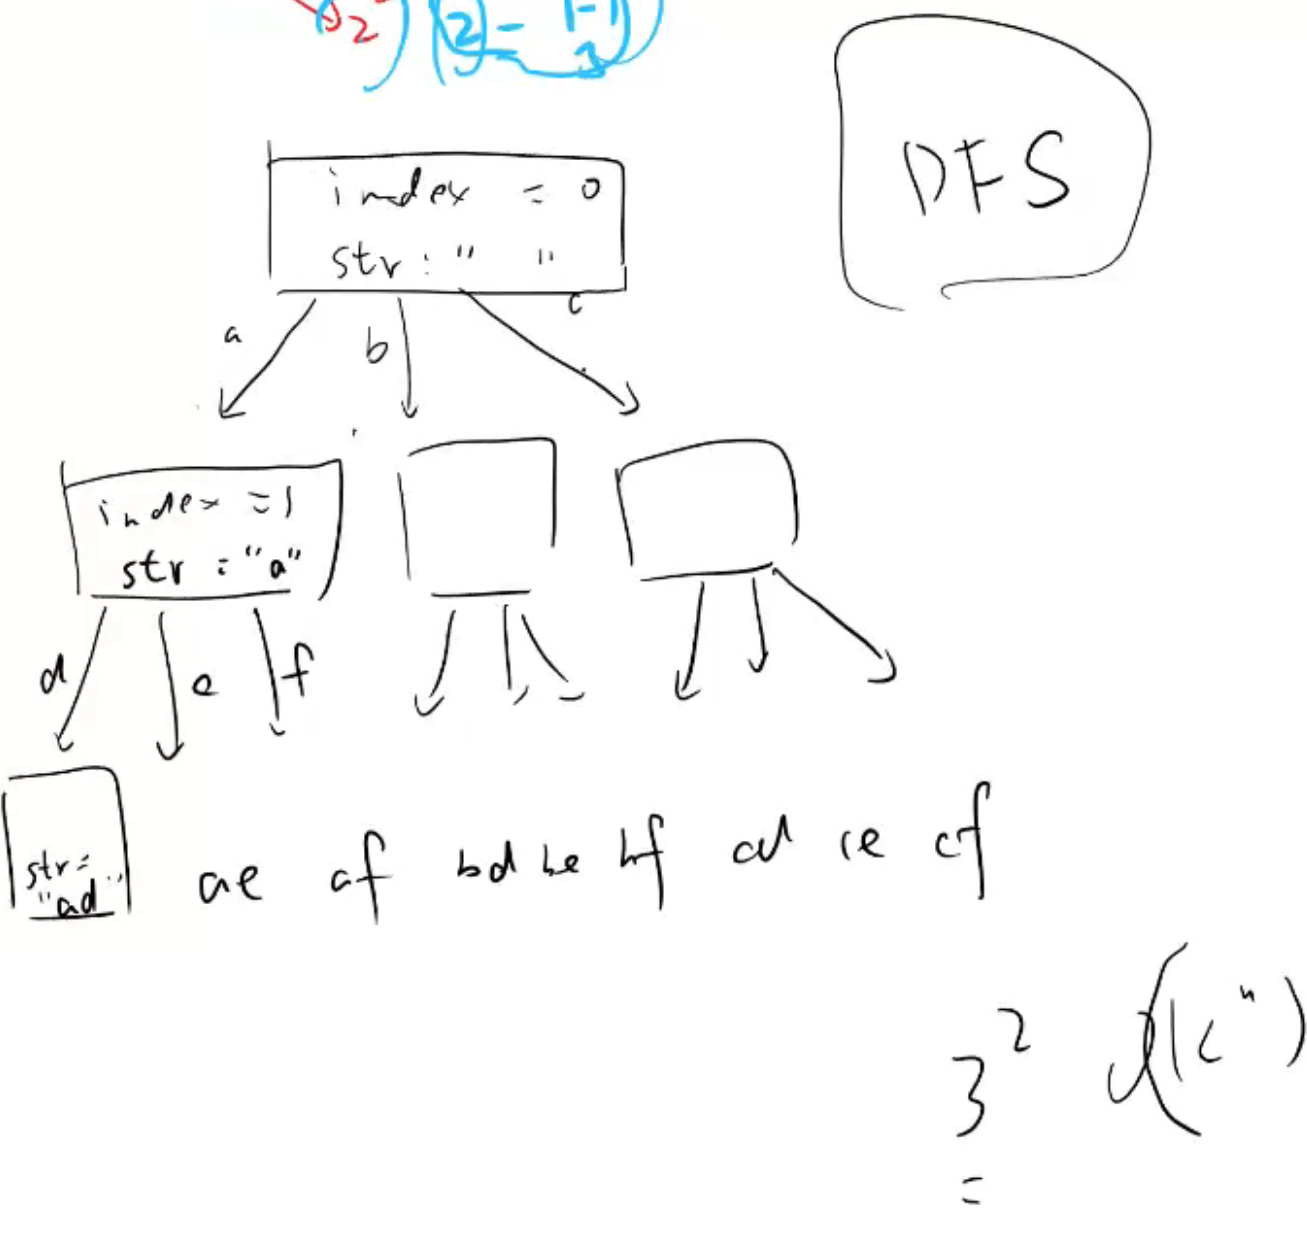 2 ) ( 2 - 1-1
DFS
index = 0
str : " "
a b c
index = 1
str : "a"
d e f
str =
"ad"
ae af bd be bf cd ce cf
3² O(k^n)
=